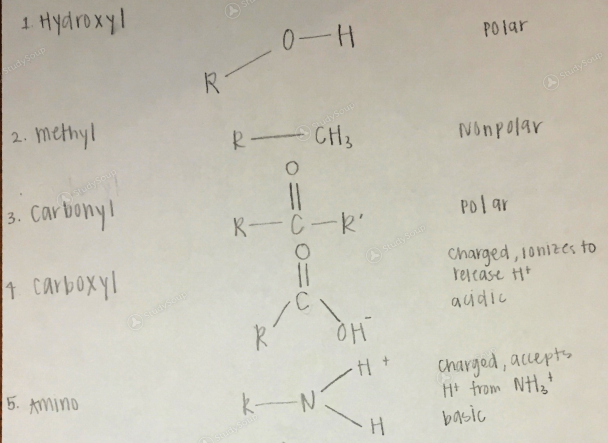 1. Hydroxyl
O—H
R
polar
2. methyl
R—CH3
Nonpolar
O
3. carbonyl
R—C—R'
polar
O
4 carboxyl
C
R
OH-
charged, ionizes to
release H+
acidic
H+
5. Amino
R—N
H
charged, accepts
H+ from NH3+
basic